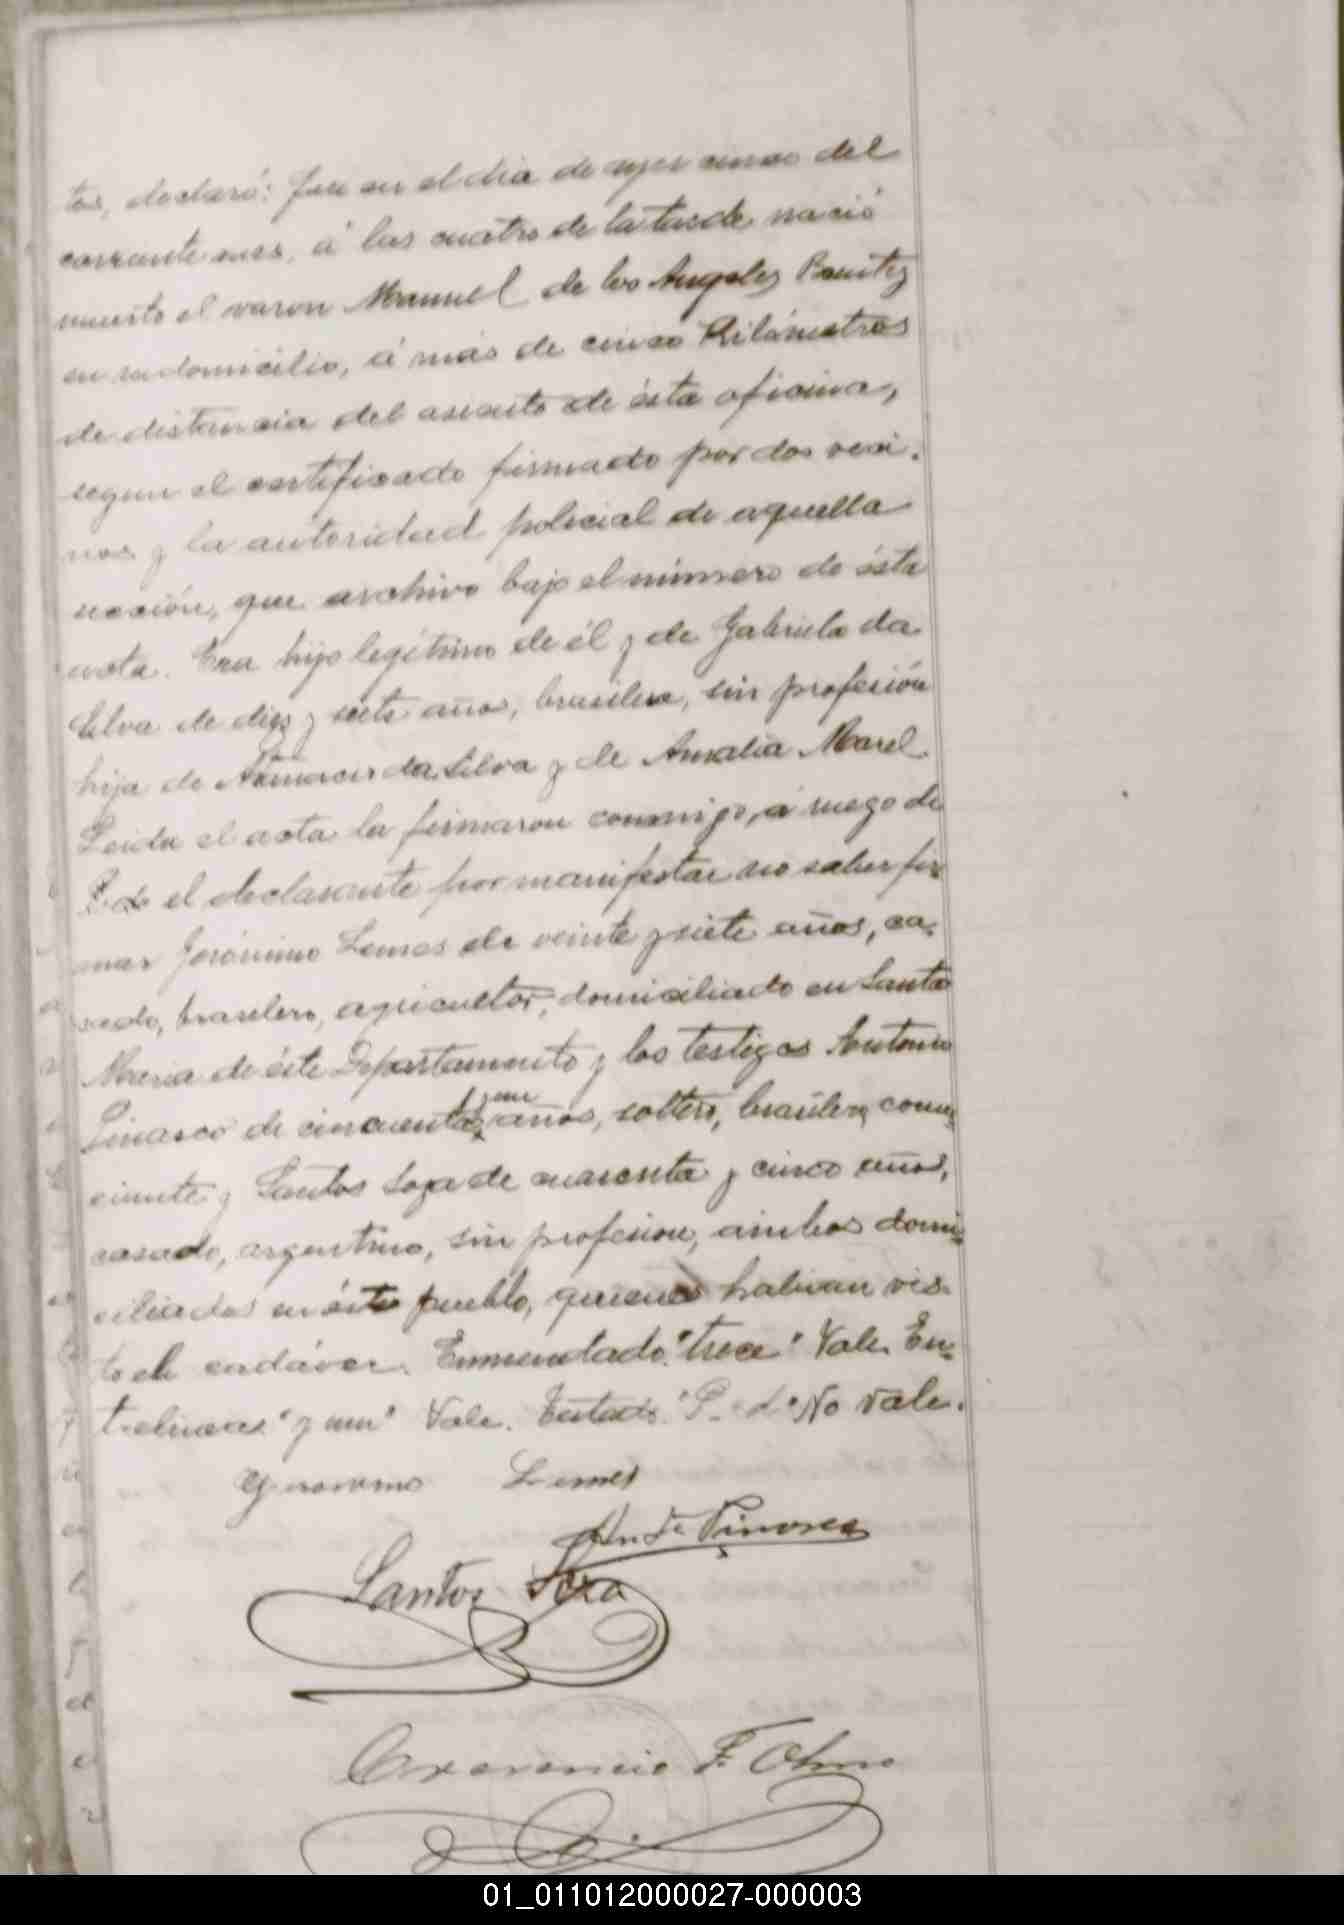 tos, declaró: Que en el dia de ayer cinco del
corriente mes, á las cuatro de la tarde nació
muerto el varon Manuel de los Angeles Benitez
en su domicilio, á más de cinco Kilómetros
de distancia del asiento de ésta oficina,
segun el certificado firmado por dos veci-
nos y la autoridad policial de aquella
sección, que archivo bajo el número de ésta
acta. Era hijo legítimo de él y de Gabriela da
Silva de diez y siete años, brasilera, sin profesión
hija de da Silva y de Amalia Marel.
Leida el acta la firmaron conmigo, á ruego de
el declarante por manifestar no saber fir
mar Jerónimo Lemes de veinte y siete años, ca-
sado, brasilero, agricultor, domiciliado en Santa
Maria de éste Departamento y los testigos Antonio
Pinasco de cincuenta y un años, soltero, brasilero, comer-
ciante y Santos Soza de cuarenta y cinco años,
casado, argentino, sin profesion, ambos domi-
ciliados en éste pueblo, quienes habian vis-
to el cadáver. Enmendado "trece" Vale. En-
trelineas "y un" Vale. Testado "P. d." No vale.
Geronimo Lemes
Ant. Pinasco
Santos Soza
F. Olmo
01_011012000027-000003